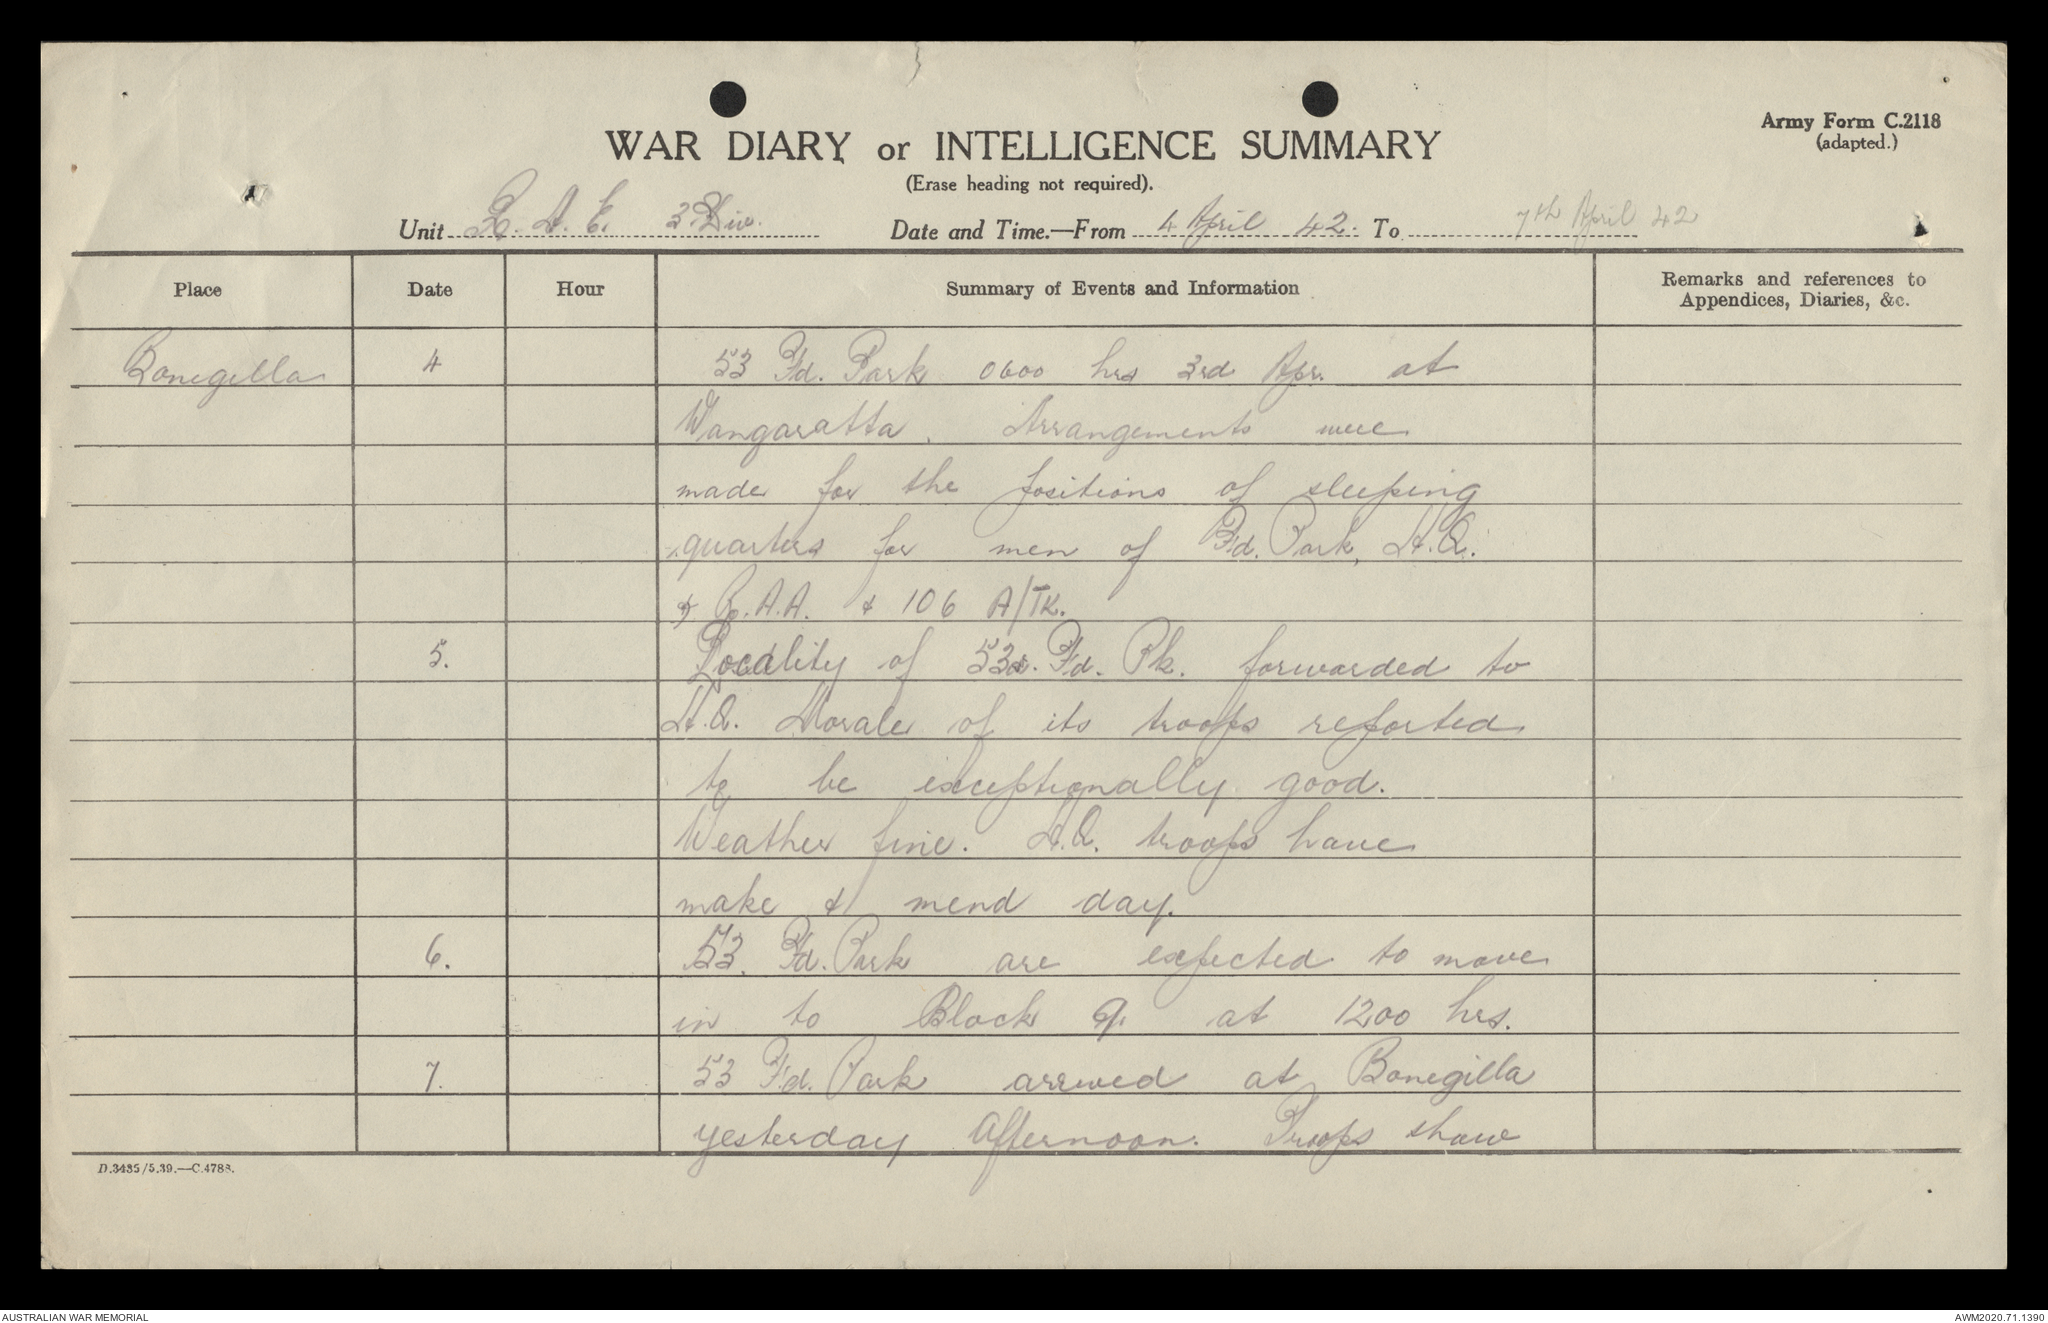 Army Form C.2118
(adapted.)
WAR DIARY or INTELLIGENCE SUMMARY
(Erase heading not required).
Unit R. A. E. 3 Div. Date and Time.—From 4 April 42. To 7th April 42
Place Date Hour Summary of Events and Information Remarks and references to Appendices, Diaries, &c.
Bonegilla 4 53 Fd. Park 0600 hrs 3rd Apr. at
Wangaratta. Arrangements were
made for the positions of sleeping
quarters for men of Fd. Park, H.Q.
& R.A.A. & 106 A/TK.
5. Locality of 53 Fd. Pk. forwarded to
H.Q. Morale of its troops reported
to be exceptionally good.
Weather fine. H.Q. troops have
make & mend day.
6. 53. Fd. Park are expected to move
in to Block 9. at 1200 hrs.
7. 53 Fd. Park arrived at Bonegilla
yesterday Afternoon. Troops show
D.3435/5.39.—C.4788.
AUSTRALIAN WAR MEMORIAL AWM2020.71.1390